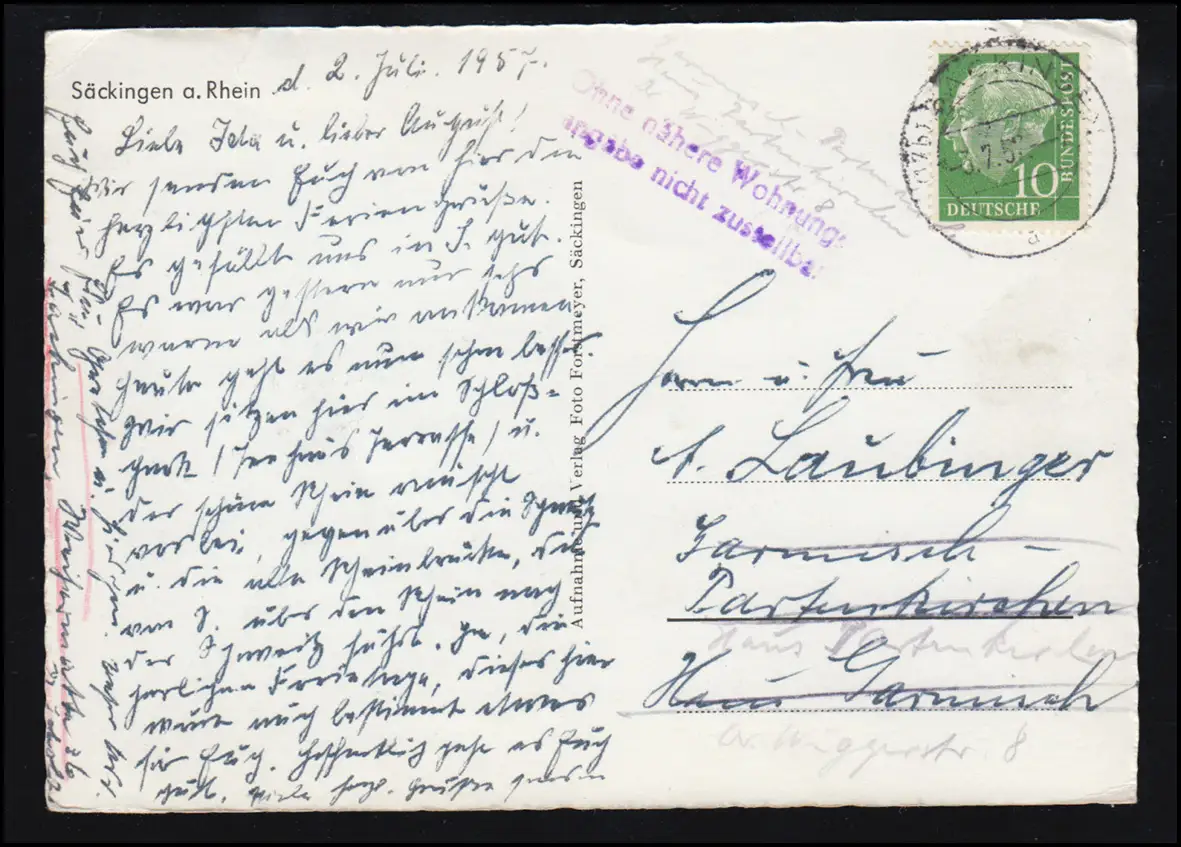 Säckingen a. Rhein
d. 2. Juli. 1957.
Liebe Ida u. lieber August!
Wir senden Euch von hier den
herzlichsten Feriengrüße.
Es gefällt uns in S. gut.
Es war gestern nur sehr
warm als wir ankamen
heute geht es nun schon besser.
Wir sitzen hier im Schloß-
park (Teehaus Terrasse) u.
der schöne Rhein rauscht
vorbei, gegenüber die Schweiz
u. die alte Rheinbrücke, die
von S. über den Rhein nach
der Schweiz führt. Ja, die
herrlichen Ferientage, dieses hier
wäre auch bestimmt etwas
für Euch. Hoffentlich geht es Euch
gut. Viele herzl. Grüße
Säckingen
Aufnahme und Verlag Foto Forstmeyer, Säckingen
Ohne nähere Wohnungs-
angabe nicht zustellbar
Haus Partenkirchen
SÄCKINGEN
10
DEUTSCHE
BUNDESPOST
a
Herrn u. Frau
A. Laubinger
Garmisch -
Partenkirchen
Haus Partenkirchen
Haus Garmisch
Dr. Wiggerstr. 8